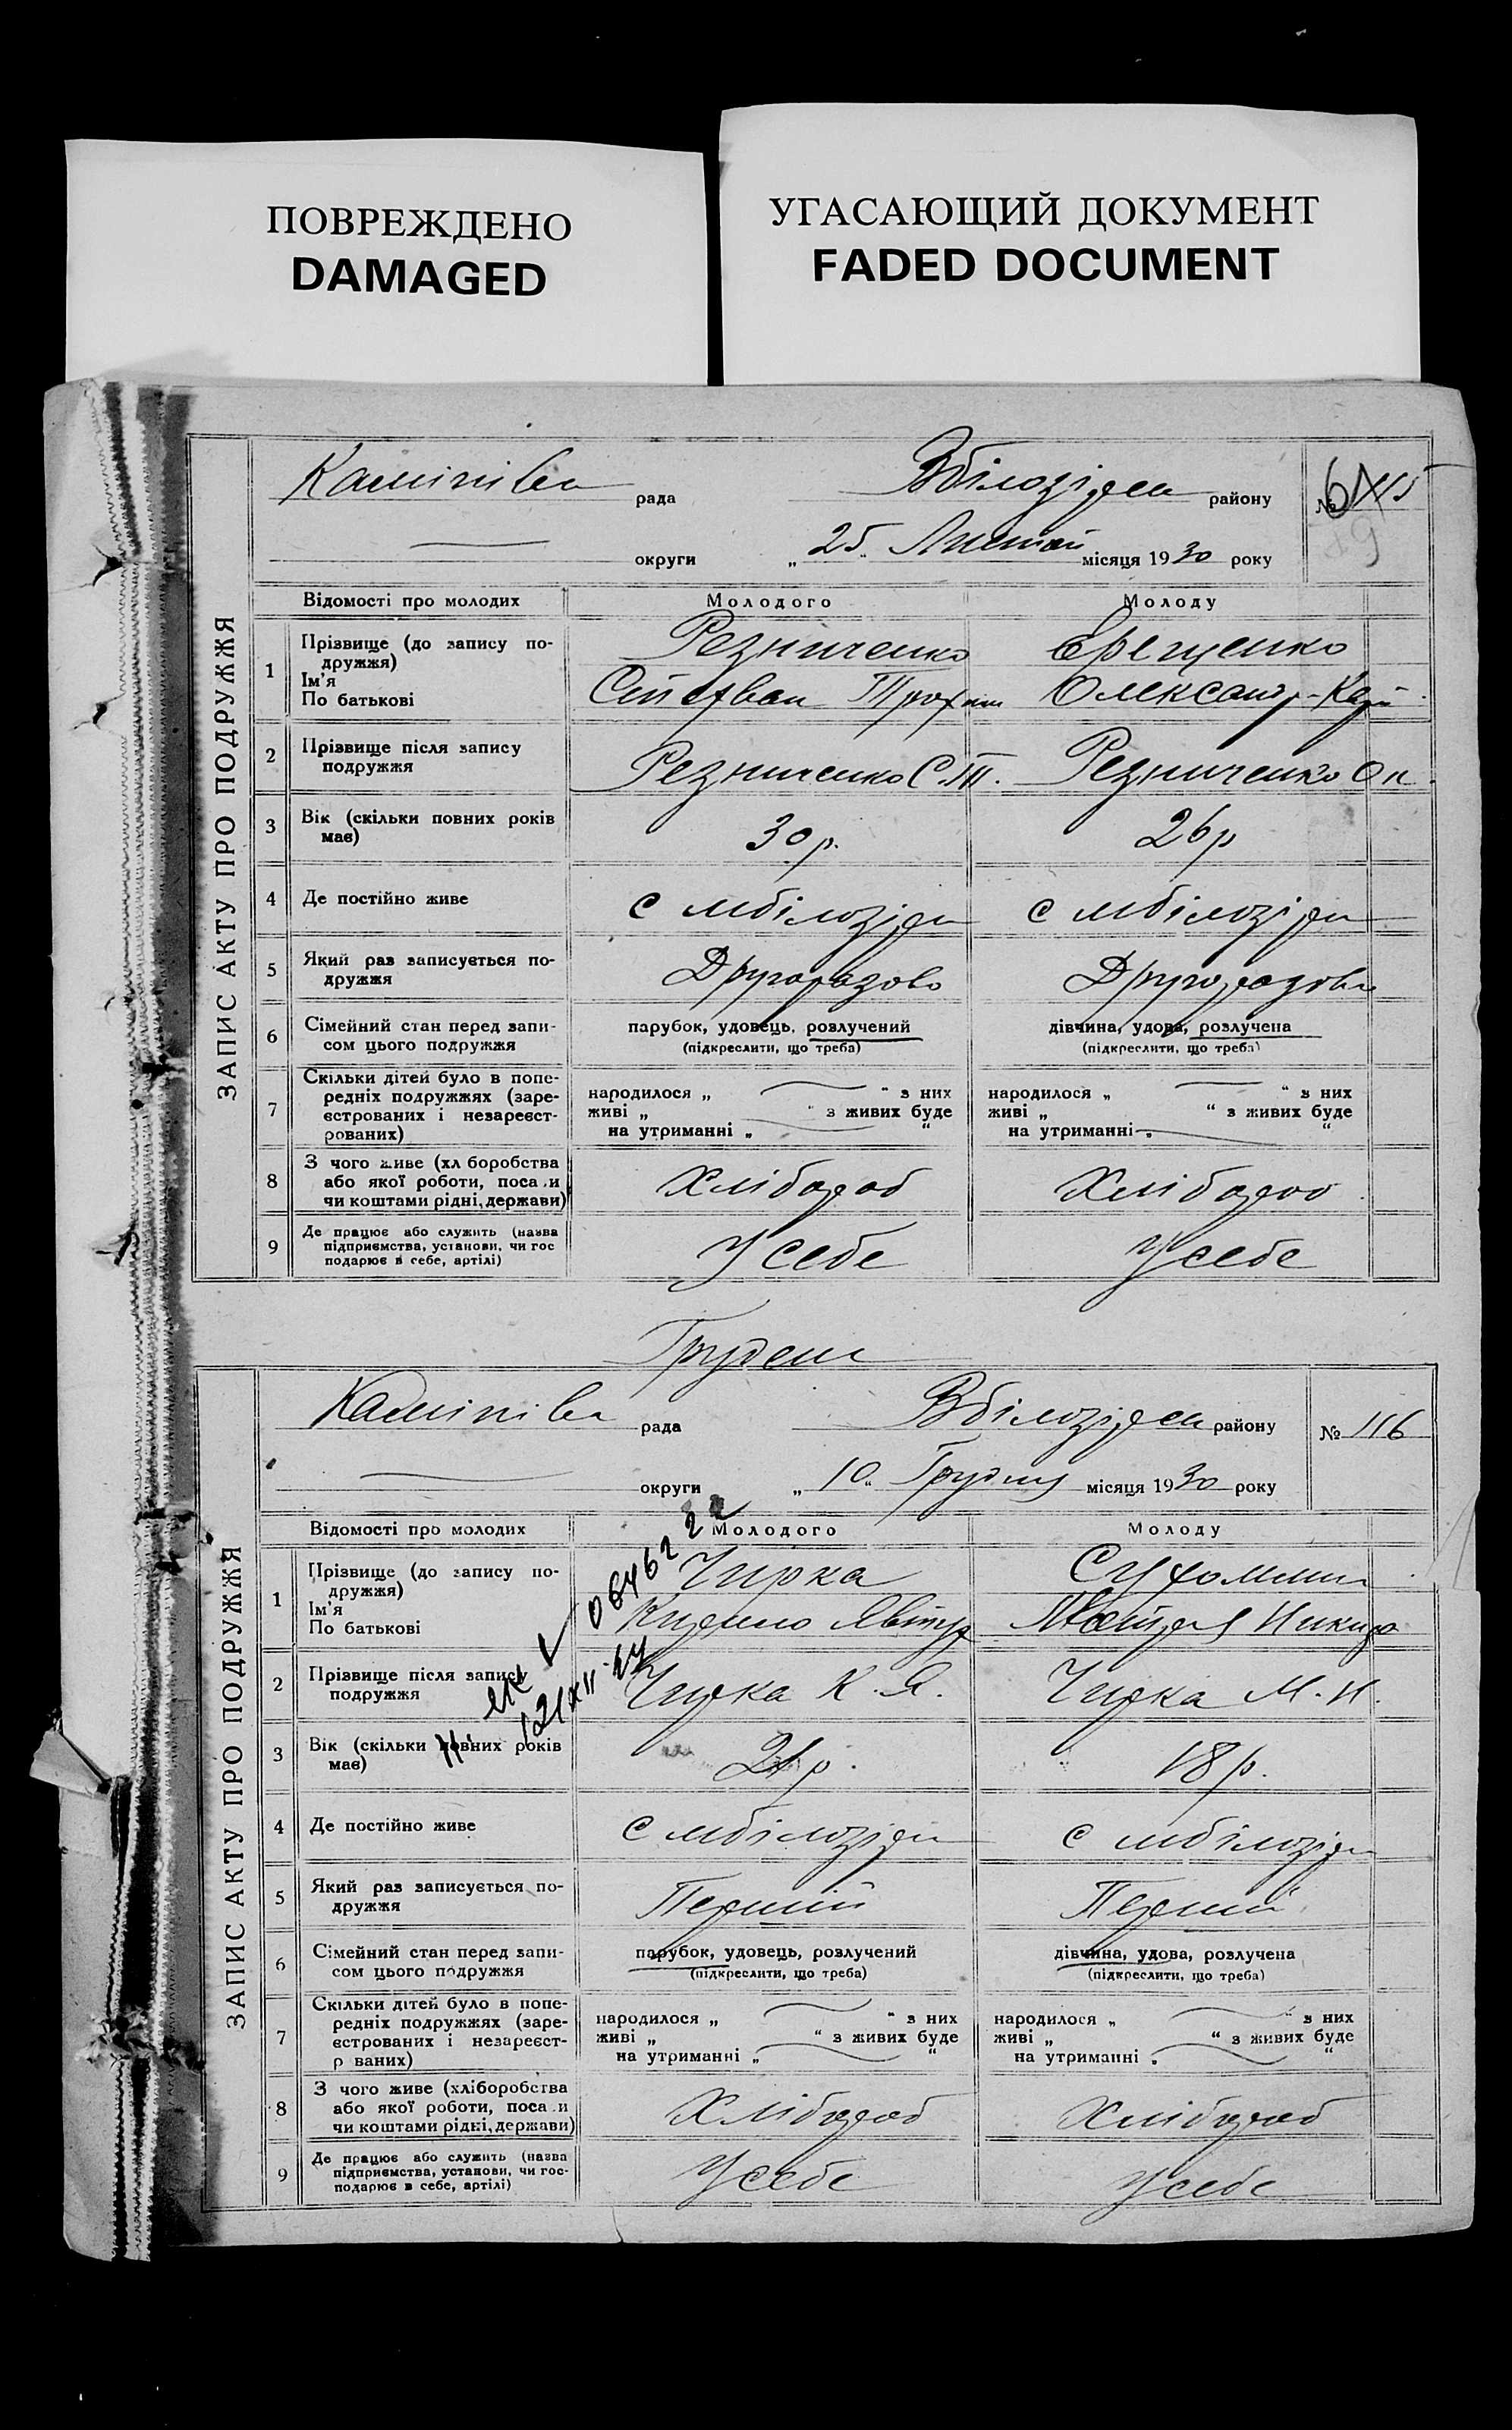 ПОВРЕЖДЕНО
DAMAGED
УГАСАЮЩИЙ ДОКУМЕНТ
FADED DOCUMENT
ЗАПИС АКТУ ПРО ПОДРУЖЖЯ
рада Вбілозірса району № 115
64
округи „ 25 " місяця 1930 року
Відомості про молодих Молодого Молоду
1 Прізвище (до запису по-
дружжя) Резниченко Єрещенко
Ім'я
По батькові Степван Трохим Олександ-
2 Прізвище після запису
подружжя Резниченко С.Т. Резниченко О К.
3 Вік (скільки повних років
має) 30 р. 26 р
4 Де постійно живе с мбілозірки с мбілозірки
5 Який раз записується по-
дружжя Другоразово Другоразово
6 Сімейний стан перед запи-
сом цього подружжя
парубок, удовець, розлучений дівчина, удова, розлучена
(підкреслити, що треба) (підкреслити, що треба)
7 Скільки дітей було в попе-
редніх подружжях (заре-
єстрованих і незареєст-
рованих)
народилося „ " з них народилося „ " з них
живі „ " з живих буде живі „ " з живих буде
на утриманні „ " на утриманні „ "
8 З чого живе (хл боробства
або якої роботи, поса и
чи коштами рідні, держави) Хлібороб Хлібороб
9 Де працює або служить (назва
підприємства, установи, чи гос
подарює в себе, артілі) У себе У себе
Грудень
ЗАПИС АКТУ ПРО ПОДРУЖЖЯ
рада Вбілозірса району № 116
округи „ 10 " Грудня місяця 1930 року
Відомості про молодих Молодого Молоду
1 Прізвище (до запису по-
дружжя) Чирка Сухомлин
Ім'я
По батькові Кирило Явтух Мотря Никифо
2 Прізвище після запису
подружжя Чирка К. Я. Чирка М. Н.
3 Вік (скільки повних років
має) 21 р. 18 р.
4 Де постійно живе с мбілозірки с мбілозірки
5 Який раз записується по-
дружжя Перший Перший
6 Сімейний стан перед запи-
сом цього подружжя
парубок, удовець, розлучений дівчина, удова, розлучена
(підкреслити, що треба) (підкреслити, що треба)
7 Скільки дітей було в попе-
редніх подружжях (заре-
єстрованих і незареєст-
р ваних)
народилося „ " з них народилося „ " з них
живі „ " з живих буде живі „ " з живих буде
на утриманні „ " на утриманні „ "
8 З чого живе (хліборобства
або якої роботи, поса и
чи коштами рідні, держави) Хлібороб Хлібороб
9 Де працює або служить (назва
підприємства, установи, чи гос-
подарює в себе, артілі) У себе У себе